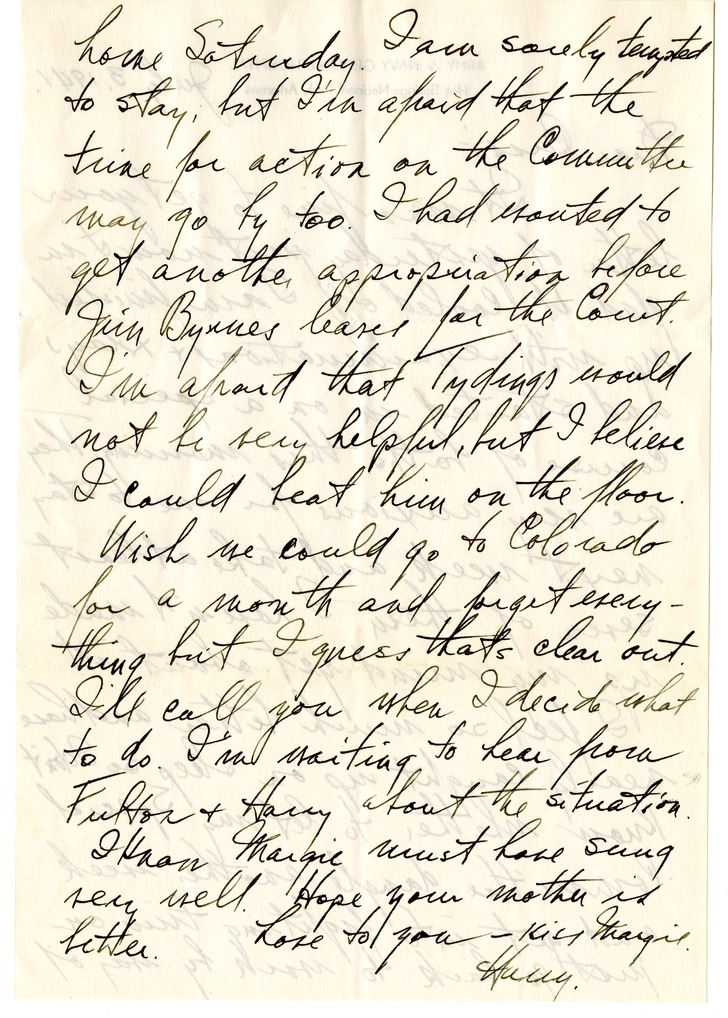 home Saturday. I am sorely tempted
to stay, but I'm afraid that the
time for action on the Committee
may go by too. I had wanted to
get another appropriation before
Jim Byrnes leaves for the Court.
I'm afraid that Tydings would
not be very helpful, but I believe
I could beat him on the floor.
Wish we could go to Colorado
for a month and forget every-
thing but I guess that's clear out.
I'll call you when I decide what
to do. I'm waiting to hear from
Fulton & Harry about the situation.
I know Margie must have sung
very well. Hope your mother is
better. Love to you - Kiss Margie.
Harry.